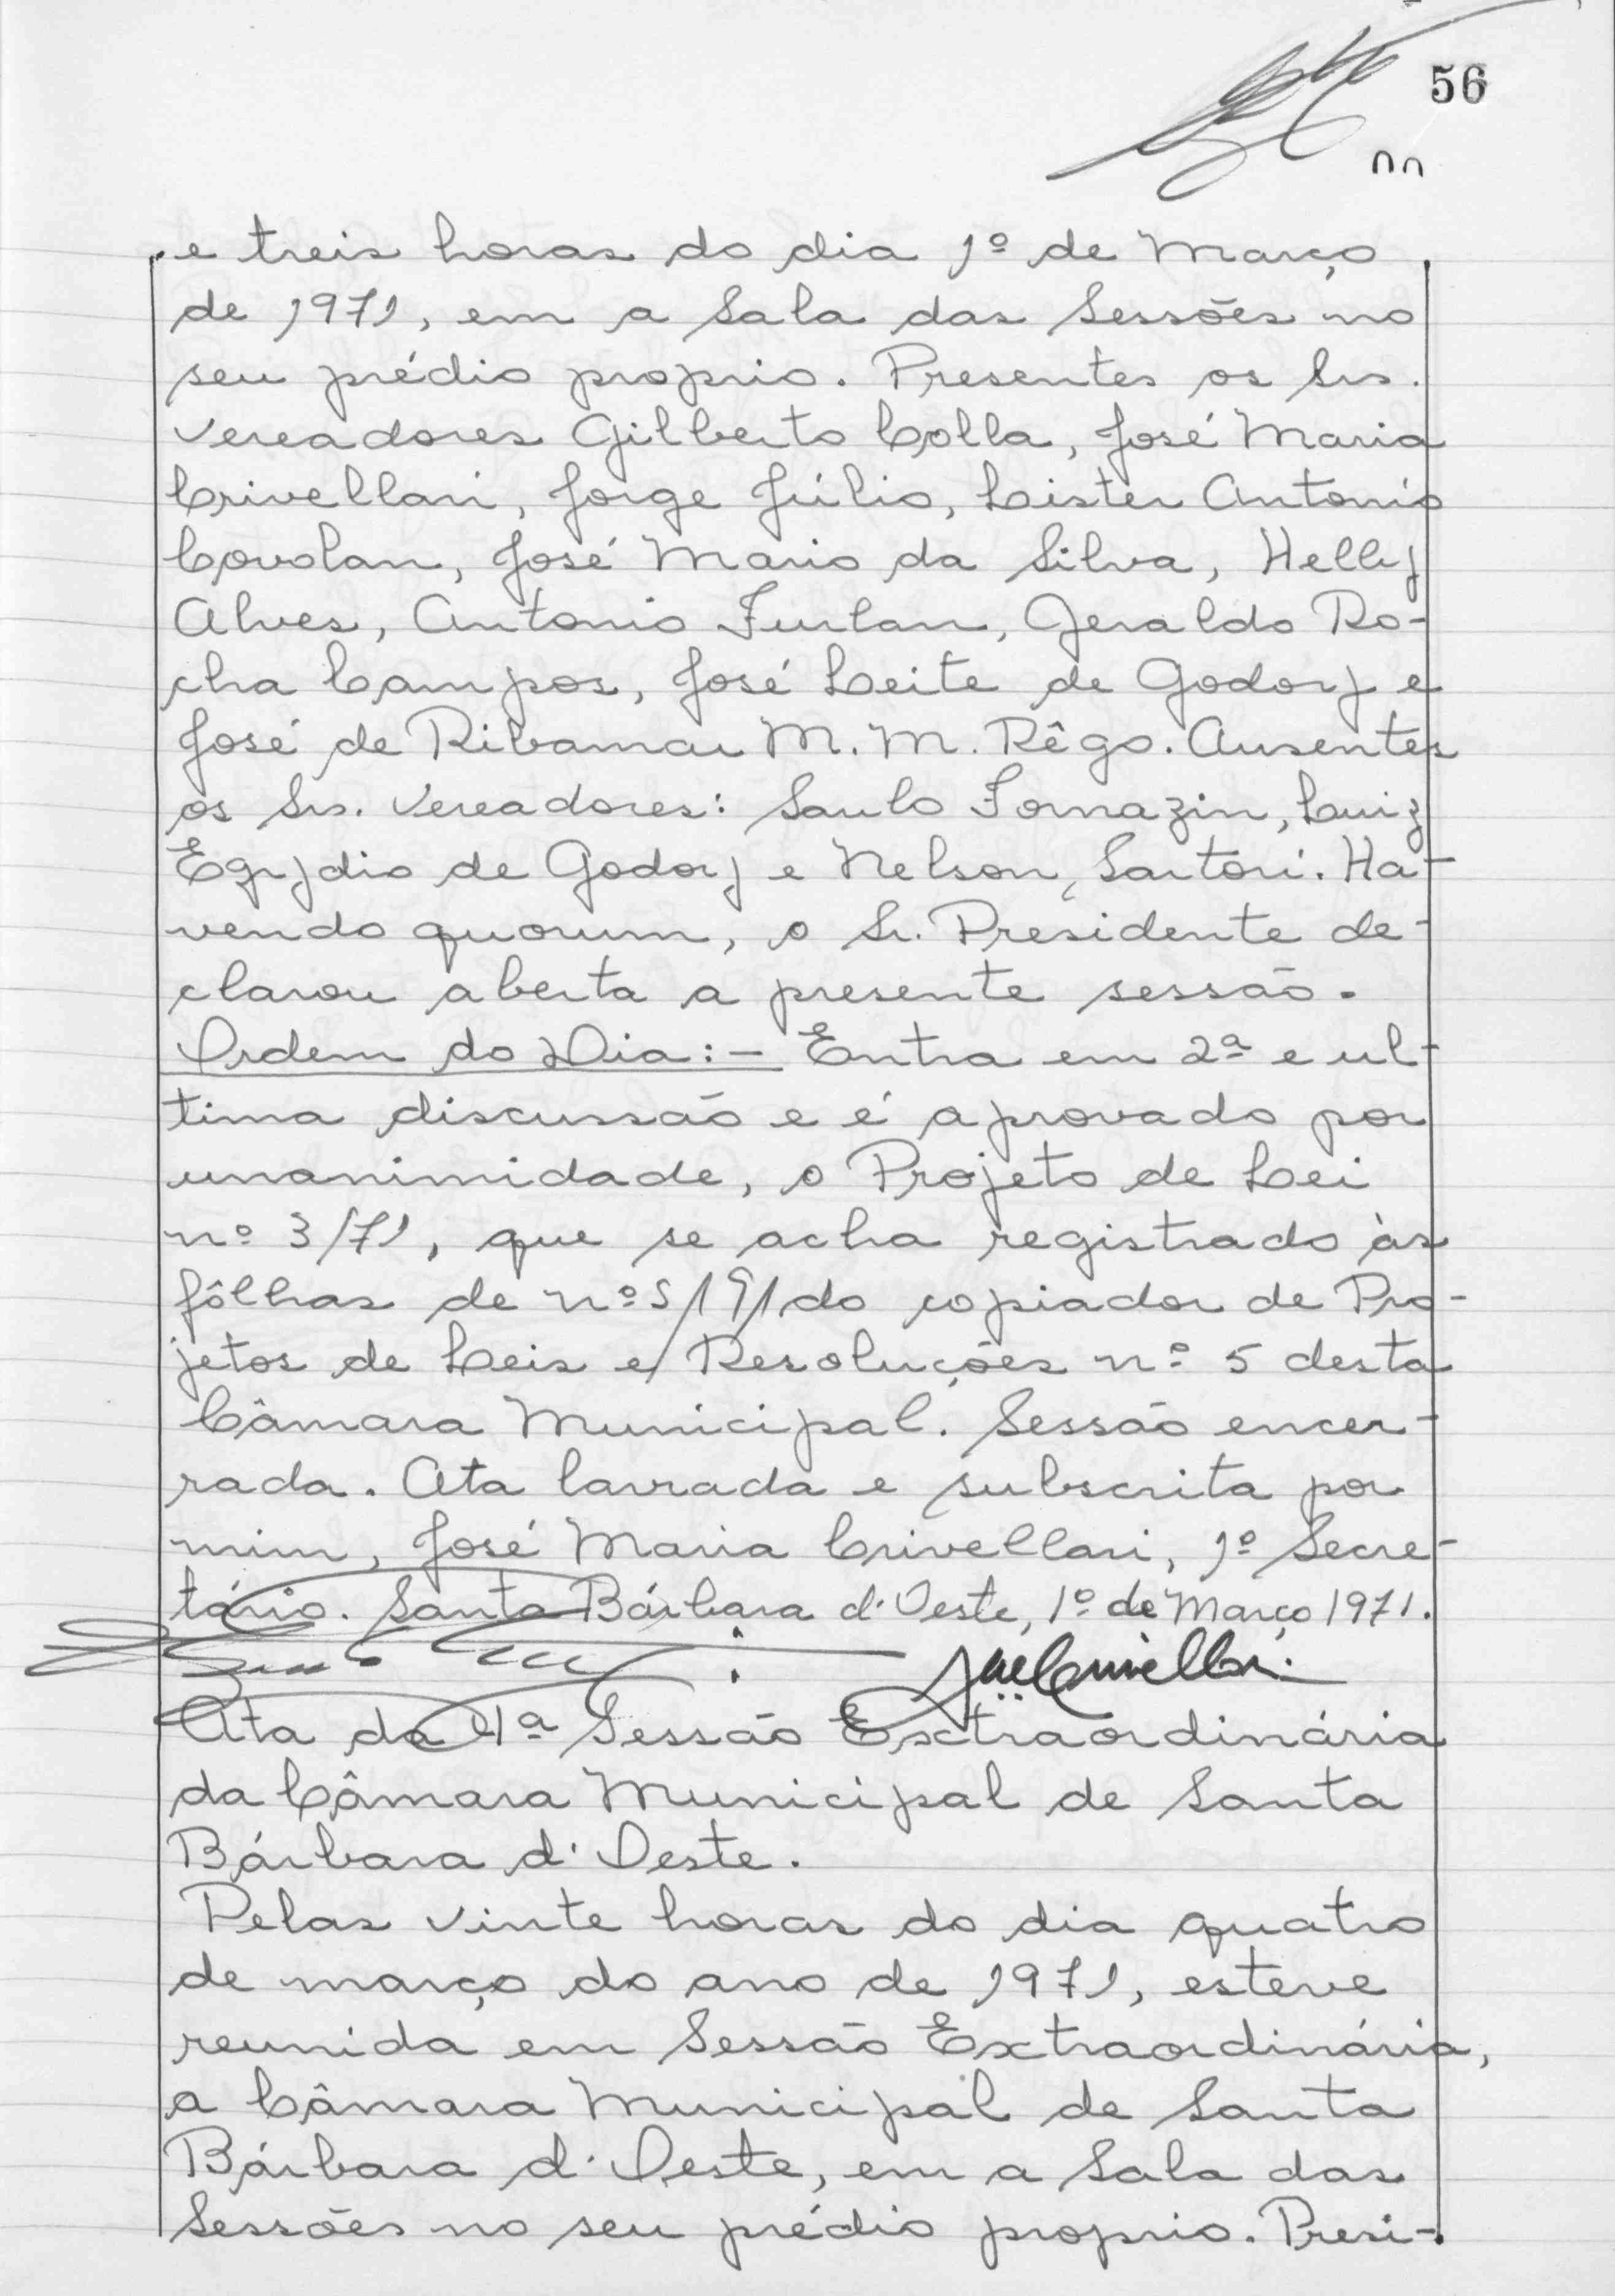 56
e treis horas do dia 1º de Março
de 1971, em a Sala das Sessões no
seu prédio proprio. Presentes os Srs.
Vereadores Gilberto Colla, José Maria
Crivellari, Jorge Júlio, Lister Antonio
Covolan, José Mario da Silva, Helly
Alves, Antonio Furlan, Geraldo Ro-
cha Campos, José Leite de Godoy e
José de Ribamar M. M. Rêgo. Ausentes
os Srs. Vereadores: Saulo Fornazin, Luiz
Egydio de Godoy e Nelson Sartori. Ha-
vendo quorum, o Sr. Presidente de-
clarou aberta a presente sessão.
Ordem do Dia:- Entra em 2ª e ul-
tima discussão e é aprovado por
unanimidade, o Projeto de Lei
nº 3/71, que se acha registrado às
fôlhas de nº do copiador de Pro-
jetos de Leis e Resoluções nº 5 desta
Câmara Municipal. Sessão encer-
rada. Ata lavrada e subscrita por
mim, José Maria Crivellari, 1º Secre-
tário. Santa Bárbara d'Oeste, 1º de Março 1971.
Ata da 4ª Sessão Extraordinária
da Câmara Municipal de Santa
Bárbara d'Oeste.
Pelas vinte horas do dia quatro
de março do ano de 1971, esteve
reunida em Sessão Extraordinária,
a Câmara Municipal de Santa
Bárbara d'Oeste, em a Sala das
Sessões no seu prédio proprio. Presi-